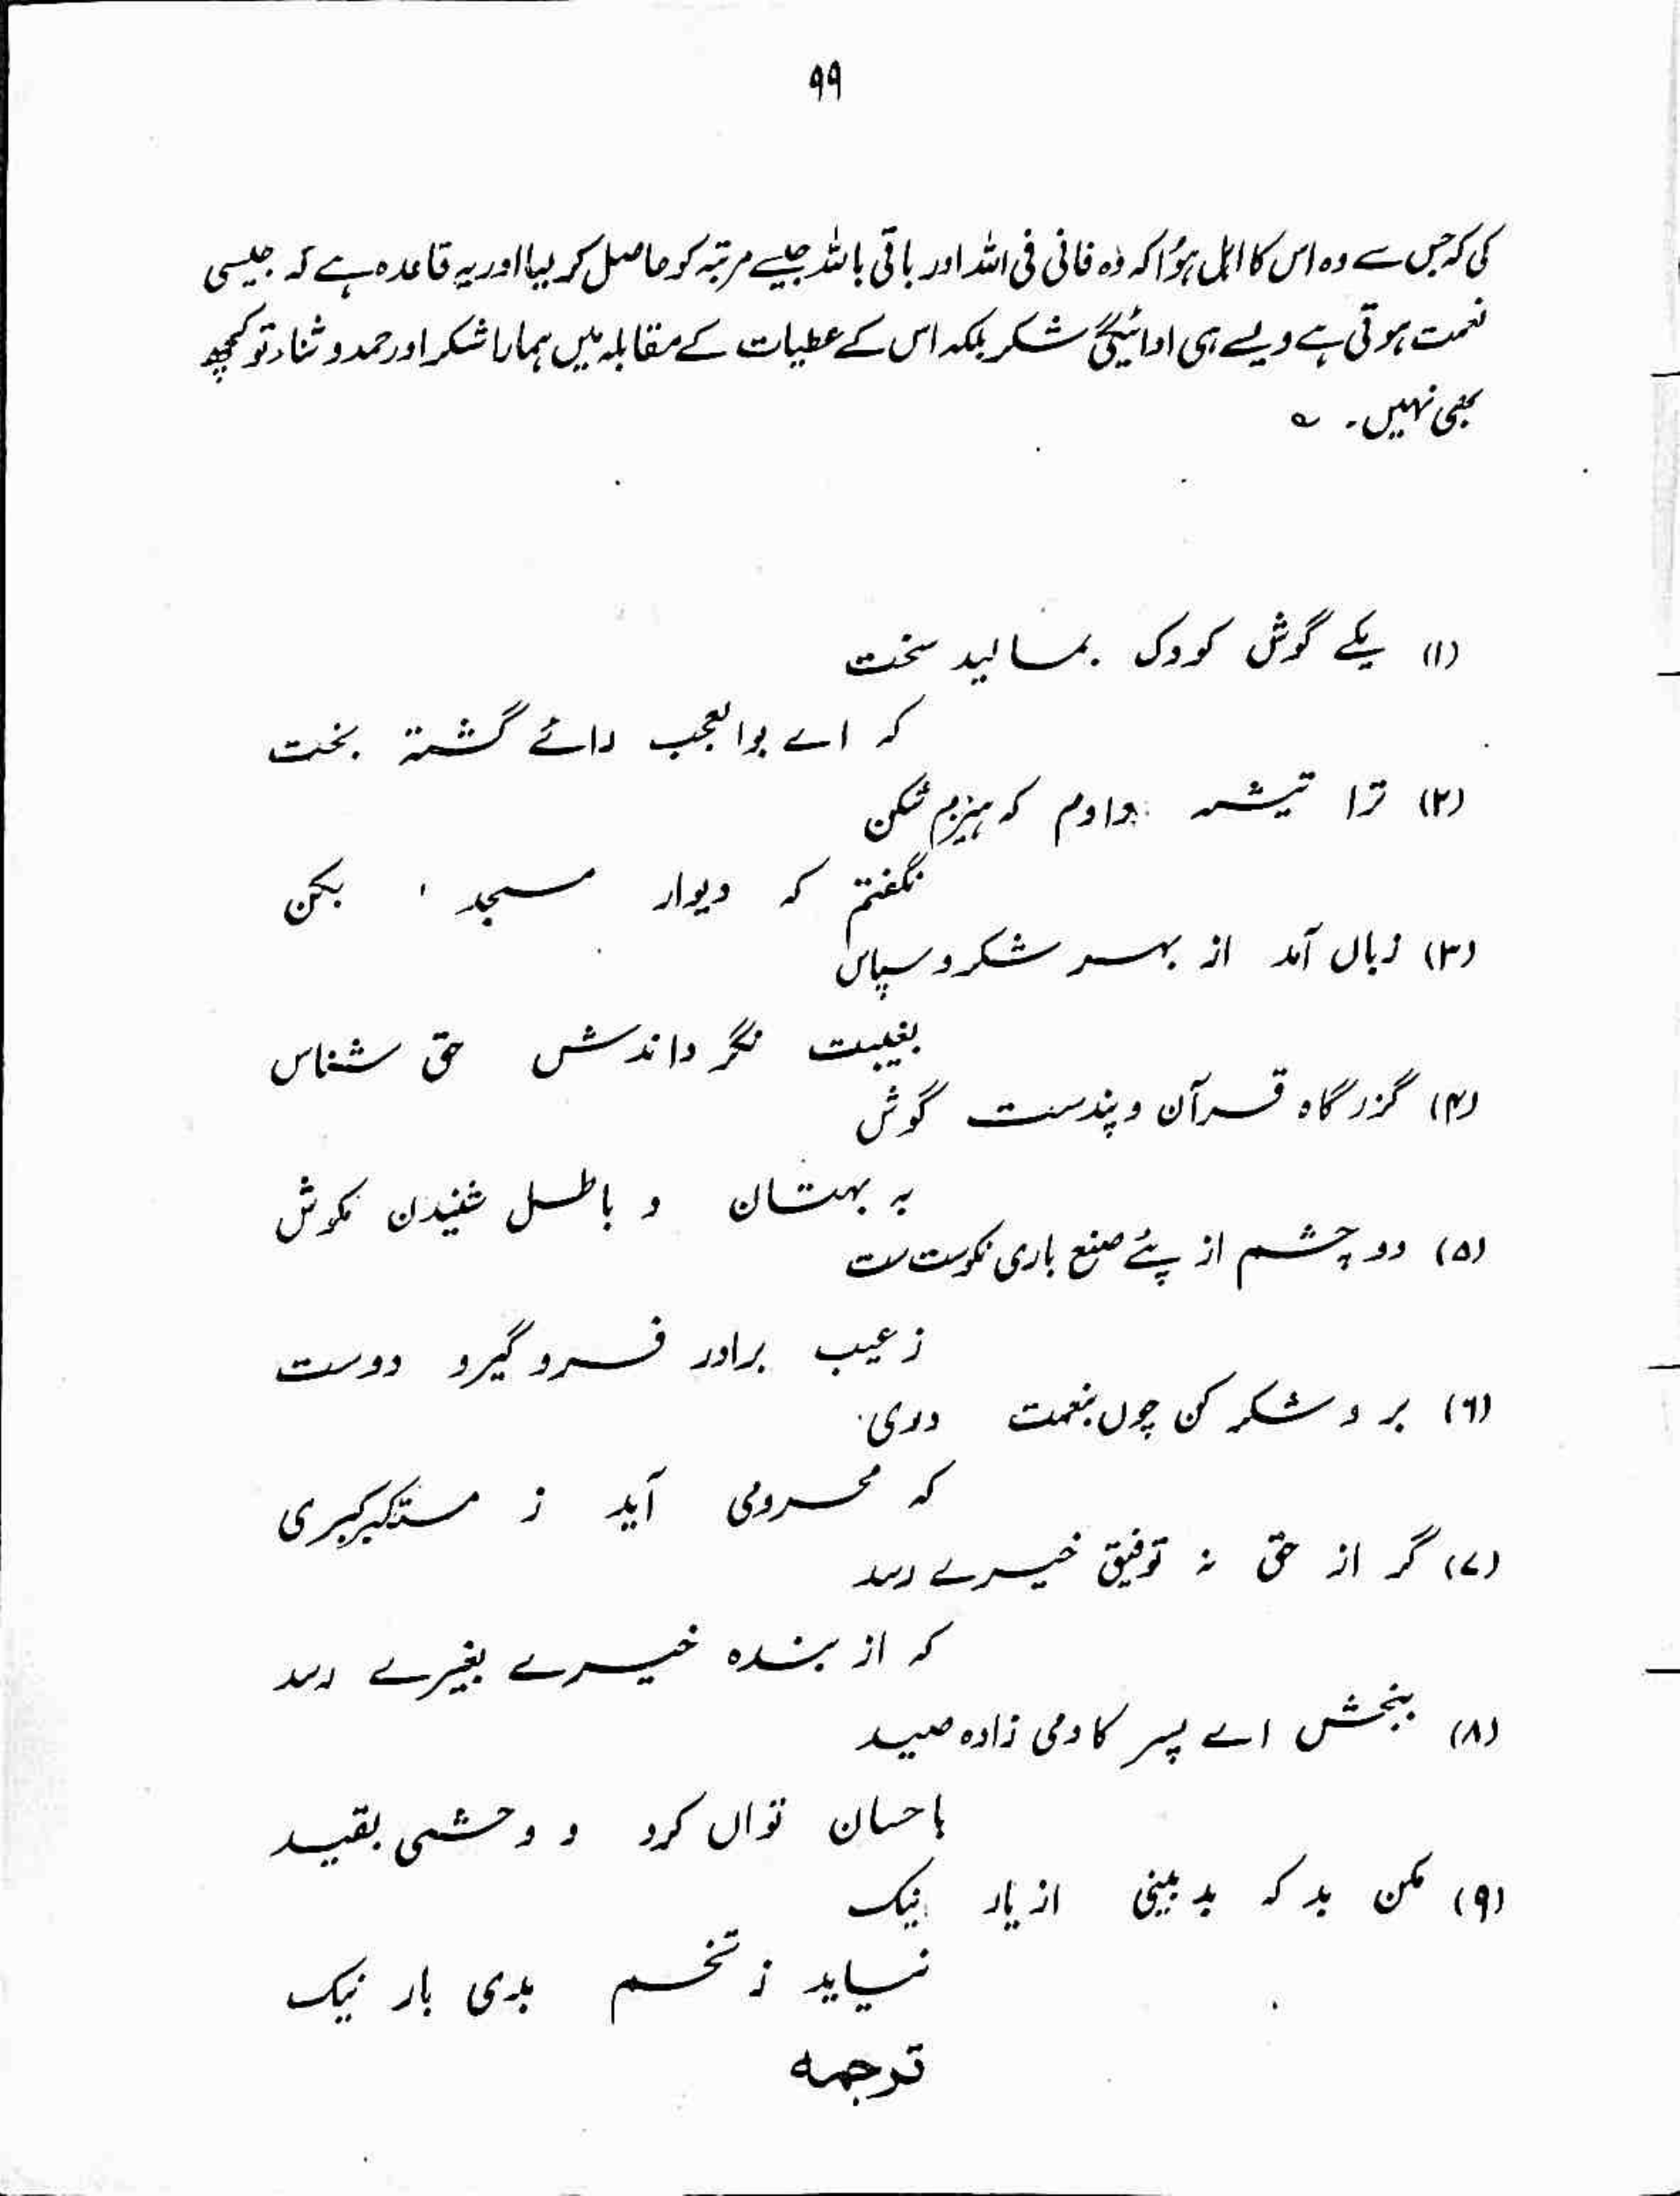 ۹۹
کی کہ جس سے وہ اس کا اہل ہوُا کہ وُہ فانی فی اللہ اور باقی باللہ جیسے مرتبہ کو حاصل کر لیا اور یہ قاعدہ ہے کہ جیسی
نعمت ہوتی ہے ویسے ہی ادائیگیٔ شکر بلکہ اس کے عطیات کے مقابلہ میں ہمارا شکر اور حمد و ثناء تو کچھ
بھی نہیں۔ ؎
(۱) یکے گوش کودک بمالید سخت
کہ اے بوالعجب رائے گشتہ بخت
(۲) ترا تیشہ دادم کہ ہیزم شکن
نگفتم کہ دیوار مسجد بکن
(۳) زباں آمد از بہر شکر و سپاس
بغیبت نگرداندش حق شناس
(۴) گزرگاہ قرآن و پندست گوش
بہ بہتان و باطل شنیدن مکوش
(۵) دو چشم از پئے صنع باری نکوست ست
ز عیب برادر فرو گیرو دوست
(۶) بر و شکر کن چوں بنعمت دری
کہ محرومی آید ز مستکبرکبری
(۷) گر از حق نہ توفیق خیرے رسد
کہ از بندہ خیرے بغیرے رسد
(۸) ببخش اے پسر کادمی زادہ صید
باحسان تواں کرد و وحشی بقید
(۹) مکن بد کہ بد بینی از یار نیک
نیاید ز تخم بدی بار نیک
ترجمہ